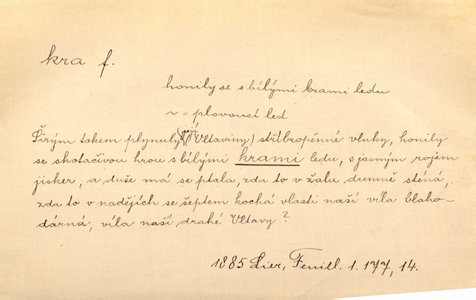 kra f.
honily se s bílými krami ledu
~ = plovoucí led
Širým tokem plynuly (Vltaviny) stříbropěnné vlnky, honily
se skotačivou hrou s bílými krami ledu, s jasným rojem
jisker, a duše má se ptala, zda to v žalu dumně sténá,
zda to v nadějích se šeptem kochá vlasti naší víla blaho-
dárná, víla naší drahé Vltavy?
1885 Lier, Feuill. 1. 177, 14.